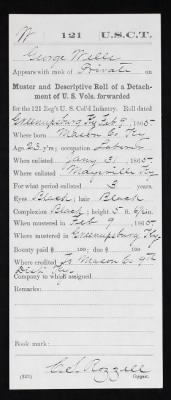 W 121 U.S.C.T.
George Wells
Appears with rank of Private on
Muster and Descriptive Roll of a Detach-
ment of U. S. Vols. forwarded
for the 121 Reg't U. S. Col'd Infantry. Roll dated
Greenupsburg Ky Feb 9, 1865.
Where born Mason Co. Ky.
Age 23 y'rs; occupation Laborer
When enlisted Jany 31, 1865.
Where enlisted Maysville Ky.
For what period enlisted 3 years.
Eyes Black; hair Black
Complexion Black; height 5 ft. in.
When mustered in Feb 9, 1865.
Where mustered in Greenupsburg Ky.
Bounty paid $ 100; due $ 100
Where credited Mason Co. 9th
Dist. Ky.
Company to which assigned
Remarks:
Book mark:
Copyist.